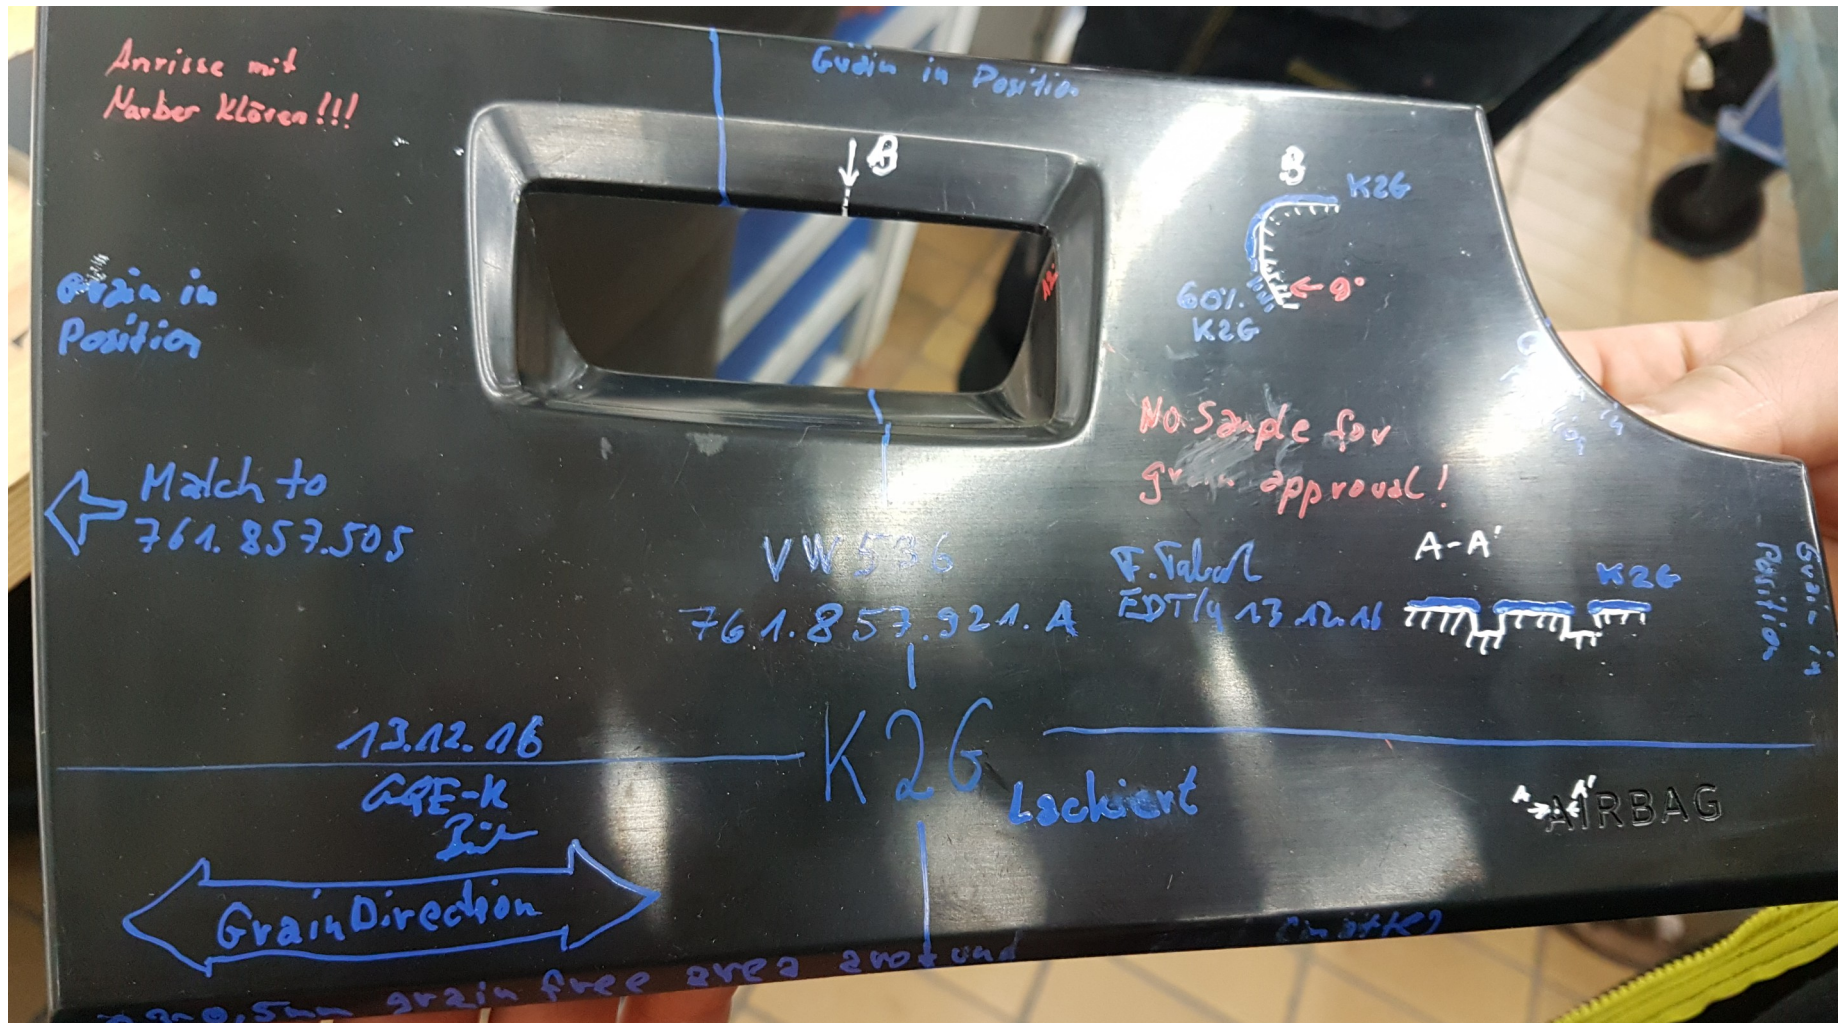 Anrisse mit
Narber klären!!!
Grain in Position
B
B
K2G
9°
60%
K2G
Grain in
Position
No Sample for
grain approval!
Match to
761.857.505
VW 536
761.857.921.A
EDT/4 13.12.16
A-A'
K2G
Grain in
Position
13.12.16
GQE-K
K2G
Lackiert
A A'
AIRBAG
Grain Direction
0,5mm grain free area around